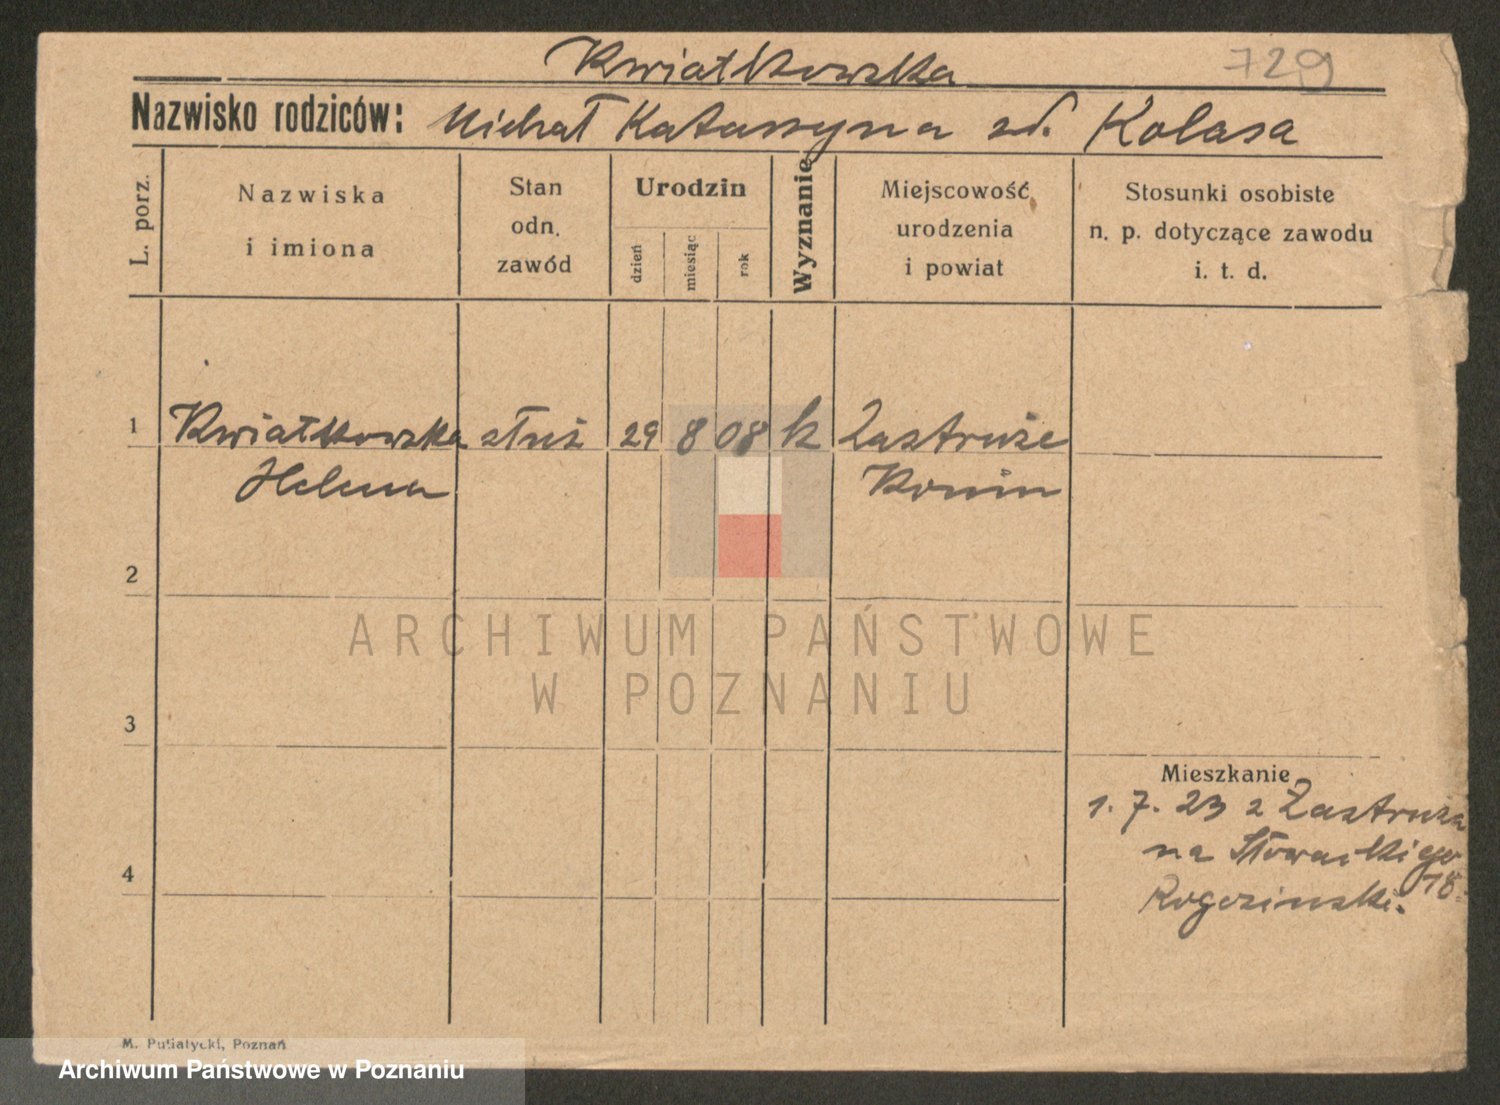 Kwiatkowska 729
Nazwisko rodziców: Michał Katarzyna zd. Kolasa
L. porz.
Nazwiska
i imiona
Stan
odn.
zawód
Urodzin
dzień
miesiąc
rok
Wyznanie
Miejscowość
urodzenia
i powiat
Stosunki osobiste
n. p. dotyczące zawodu
i. t. d.
1 Kwiatkowska służ 29 8 08 k Zastruże
Helena Konin
2
ARCHIWUM PAŃSTWOWE
W POZNANIU
3
Mieszkanie
1. 7. 23 z Zastruża
na Słowackiego
18
4
Rogozinski.
M. Putiatycki, Poznań
Archiwum Państwowe w Poznaniu